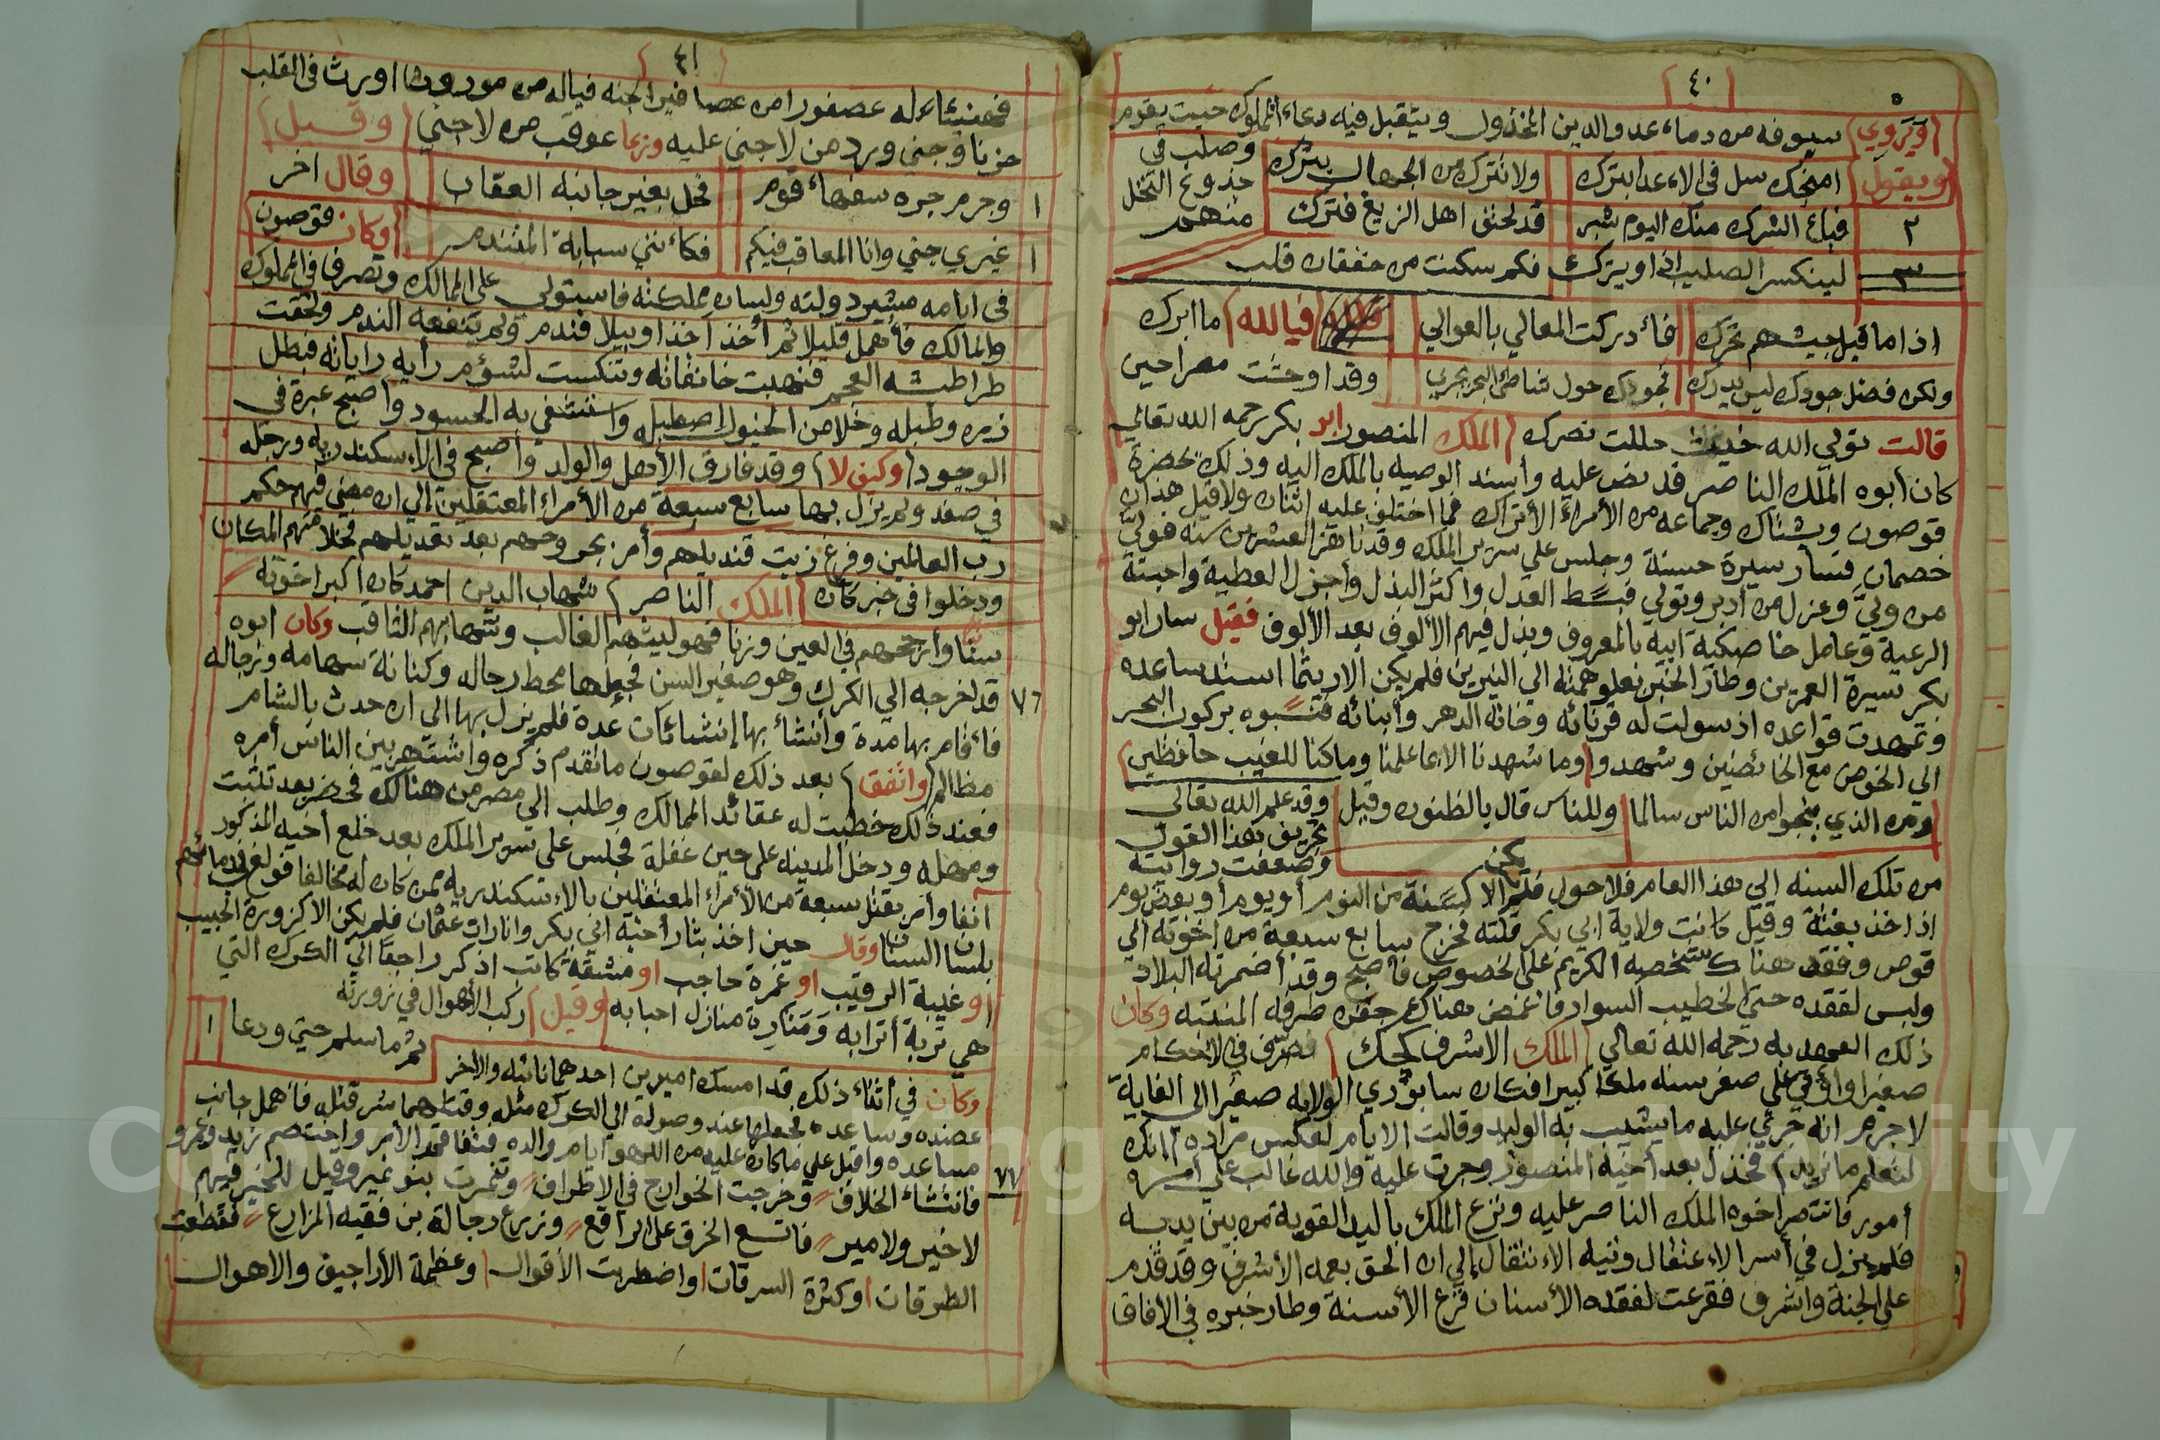 ٤٠
ويروي سيوفه من دماء عدو الدين المخذول ويتقبل فيه دعاء المملوك حيث يقوم
ويقول امنجك سل في الاعدا بترك ولا تترك من الجهال وصلب في
٢ فباع الشرك منك اليوم شبر قد لحق اهل الزيغ فترك جذوع النخل منهم
٣ لينكسر الصليب اذا وبترك فكم سكنت من خفقان قلب
اذا ما قيل جيشهم تحرك فأدركت المعالي بالعوالي فيالله ما ابرك
ولكن فضل جودك ليس يدرك بجودك حول شاطئ البحر يجري وقد اوحشت مصرا حين
قالت تولي الله حيث حللت نصرك الملك المنصور ابو بكر رحمه الله تعالي
كان أبوه الملك الناصر قد نص عليه وأسند الوصيه بالملك اليه وذلك بحضرة
قوصون وبشتاك وجماعه من الأمراء الأتراك فما اختلف عليه اثنان ولا قيل هذان
خصمان فسار سيرة حسنة وجلس علي سرير الملك وقد ناهز العشرين سنه فولي
من ولي وعزل من أدبر وتولي فبسط العدل واكثر البذل وأجزل العطية واحبته
الرعية وعامل خاصكية ابيه بالمعروف وبذل فيهم الألوف بعد الألوف فقيل سار ابو
بكر بسيرة العمرين وطار الخبر بعلو همته الي النيرين فلم يكن الا ريثما استد ساعده
وتمهدت قواعده اذ سولت له قرنائه وخانه الدهر وأبنائه فنسبوه بركوب البحر
الي الخوض مع الخائضين وشهدوا وما شهدنا الا بما علمنا وما كنا للغيب حافظين
ومن الذي ينجو من الناس سالما وللناس قال بالظنون وقيل وقد علم الله تعالى
تحريف هذا القول وضعفت روايته
من تلك السنه الي هذا العام فلا حول فلم يكن الا كسنة من النوم أو يوم أو بعض يوم
اذ اخذ بغتة وقيل كانت ولاية ابي بكر فلته فخرج سابع سبعة من اخوته الي
قوص وفقد هناك شخصه الكريم علي الخصوص فأصبح وقد أضمرته البلاد
ولبس لفقده حتي الخطيب السواد فأغمض هناك جفن طرفه المنتبه وكان
ذلك العهد به رحمه الله تعالي الملك الاشرف كجك تصرف في الاحكام
صغيرا واوتي علي صغر سنه ملكا كبيرا فكان سابوري الولايه صغيرا الي الغاية
لا جرم انه جري عليه ما يشيب به الوليد وقالت الايام لعكس مراده انك
لتعلم ما نريد فخذل بعد أخيه المنصور وجرت عليه والله غالب علي أمره
أمور فانتصر اخوه الملك الناصر عليه ونزع الملك باليد القوية من بين يديه
فلم يزل في أسر الاعتقال ونيه الانتقال الي ان الحق بعمه الأشرف وقد قدم
علي الجنة واشرف فقرعت لفقده الأسنان قرع الأسنة وطار خبره في الافاق
٤١
فهنيئا له عصفورا من عصافير الجنه فياله من مورث اورث في القلب
حزنا وجني ورد من لا جني عليه وربما عوقب من لا جني وقيل
١ وجرم جره سفهاء قوم فحل بغير جانبه العقاب وقال اخر
١ غيري جني وانا المعاقب فيكم فكأنني سبابة المتندم وكان قوصون
في ايامه مشير دولته ولسان مملكته فاستولي علي الممالك وتصرف في المملوك
والمالك فأمهل قليلا ثم أخذ أخذا وبيلا فندم ولم ينفعه الندم ولحقت
طراطشه العجم فنهبت خانقاته وتنكست لشؤم رأيه راياته فبطل
زمره وطبله وخلا من الخيول اصطبله واشتفي به الحسود وأصبح عبرة في
الوجود وكيف لا وقد فارق الأهل والولد وأصبح في الاسكندريه ورجله
في صفد ولم يزل بها سابع سبعة من الأمراء المعتقلين الي ان مضي فيهم حكم
رب العالمين وفرغ زيت قنديلهم وأمر بجروحهم بعد تعديلهم فخلا منهم المكان
ودخلوا في خبر كان الملك الناصر شهاب الدين احمد كان أكبر اخوته
سنا وأرجحهم في العين وزنا فهو ليثهم الغالب وشهابهم الثاقب وكان ابوه
قد اخرجه الي الكرك وهو صغير السن فجعلها محط رحاله وكنانة سهامه ورجاله
٧٦
فأقام بها مدة وأنشأ بها إنشائات عدة فلم يزل بها الي ان حدث بالشام
مظالم واتفق بعد ذلك لقوصون ما تقدم ذكره واشتهر بين الناس أمره
فعند ذلك خطبت له عقائد الممالك وطلب الي مصر من هنالك فحضر بعد تثبت
ومهله ودخل المدينه علي حين غفلة فجلس علي سرير الملك بعد خلع أخيه المذكور
آنفا وأمر بقتل سبعة من الأمراء المعتقلين بالاسكندريه ممن كان له مخالفا فولغ في دمائهم
بلسان السنان وقال حين اخذ بثار أخيه ابي بكر وانارات عثمان فلم يكن الا كزورة الحبيب
او غيبة الرقيب او غمزة حاجب او مشقة كاتب اذ كر راجعا الي الكرك التي
هي تربة أترابه ومنازل احبابه وقيل ركب الأهوال في زورته
ثم ما سلم حتي ودعا ١
وكان في أثناء ذلك قد امسك اميرين احدهما نائبه والاخر
عضده وساعده فجعلها عند وصوله الي الكرك مثله وقتلهما شر قتله فأهمل جانب
مساعده واقبل علي ما كان عليه من اللهو ايام والده فتفاقم الأمر واختصم زيد وعمرو
٧٧
فانتشاء الخلاف وخرجت الخوارج في الاطراف وتنمرت بنو نمير وقيل للخير فيهم
لا خير ولا مير فاتسع الخرق علي الراقع وزرع رجالة بن فقيه المزارع فقطعت
الطرقات وكثرة السرقات واضطربت الأقوال وعظمة الأراجيف والاهوال